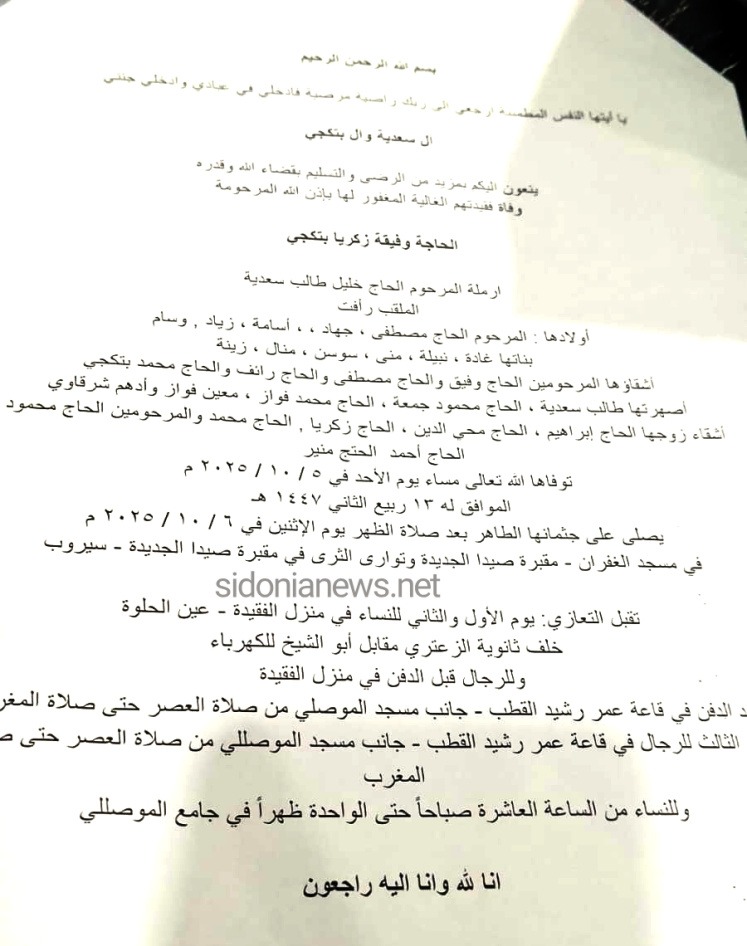 بسم الله الرحمن الرحيم
يا أيتها النفس المطمئنة ارجعي الى ربك راضية مرضية فادخلي في عبادي وادخلي جنتي
ال سعدية وال بتكجي
ينعون اليكم بمزيد من الرضى والتسليم بقضاء الله وقدره
وفاة فقيدتهم الغالية المغفور لها بإذن الله المرحومة
الحاجة وفيقة زكريا بتكجي
ارملة المرحوم الحاج خليل طالب سعدية
الملقب رأفت
أولادها : المرحوم الحاج مصطفى ، جهاد ، ، أسامة ، زياد , وسام
بناتها غادة ، نبيلة ، منى ، سوسن ، منال ، زينة
أشقاؤها المرحومين الحاج وفيق والحاج مصطفى والحاج رائف والحاج محمد بتكجي
أصهرتها طالب سعدية ، الحاج محمود جمعة ، الحاج محمد فواز ، معين فواز وأدهم شرقاوي
أشقاء زوجها الحاج إبراهيم ، الحاج محي الدين ، الحاج زكريا , الحاج محمد والمرحومين الحاج محمود
الحاج أحمد الحتج منير
توفاها الله تعالى مساء يوم الأحد في ٥ / ١٠ / ٢٠٢٥ م
الموافق له ١٣ ربيع الثاني ١٤٤٧ هـ
يصلى على جثمانها الطاهر بعد صلاة الظهر يوم الإثنين في ٦ / ١٠ / ٢٠٢٥ م
في مسجد الغفران - مقبرة صيدا الجديدة وتوارى الثرى في مقبرة صيدا الجديدة - سيروب
sidonianews.net
تقبل التعازي: يوم الأول والثاني للنساء في منزل الفقيدة - عين الحلوة
خلف ثانوية الزعتري مقابل أبو الشيخ للكهرباء
وللرجال قبل الدفن في منزل الفقيدة
الدفن في قاعة عمر رشيد القطب - جانب مسجد الموصلي من صلاة العصر حتى صلاة
الثالث للرجال في قاعة عمر رشيد القطب - جانب مسجد الموصللي من صلاة العصر حتى
المغرب
وللنساء من الساعة العاشرة صباحاً حتى الواحدة ظهراً في جامع الموصللي
انا لله وانا اليه راجعون